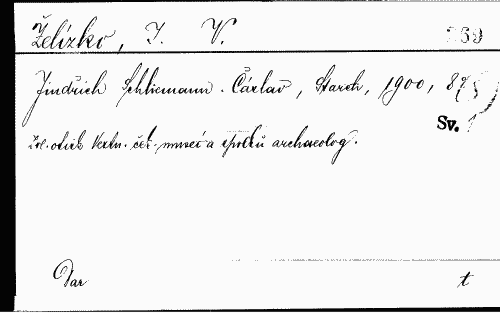 Želízko, J. V. 569
Jindřich Schliemann. Čáslav, Starch, 1900, 8º
Sv. 1
Zvl. otisk Věstn. čes. museí a spolků archaeolog.
Dar t